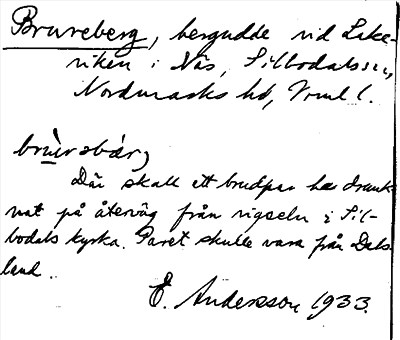 Brureberg, bergudde vid Lake-
viken i Nås, Silbodals sn,
Nordmarks hd, Vrml l.
Där skall ett brudpar ha drunk
nat på återväg från vigseln i Sil-
bodals kyrka. Paret skulle vara från Dals
land.
E. Andersson 1933.